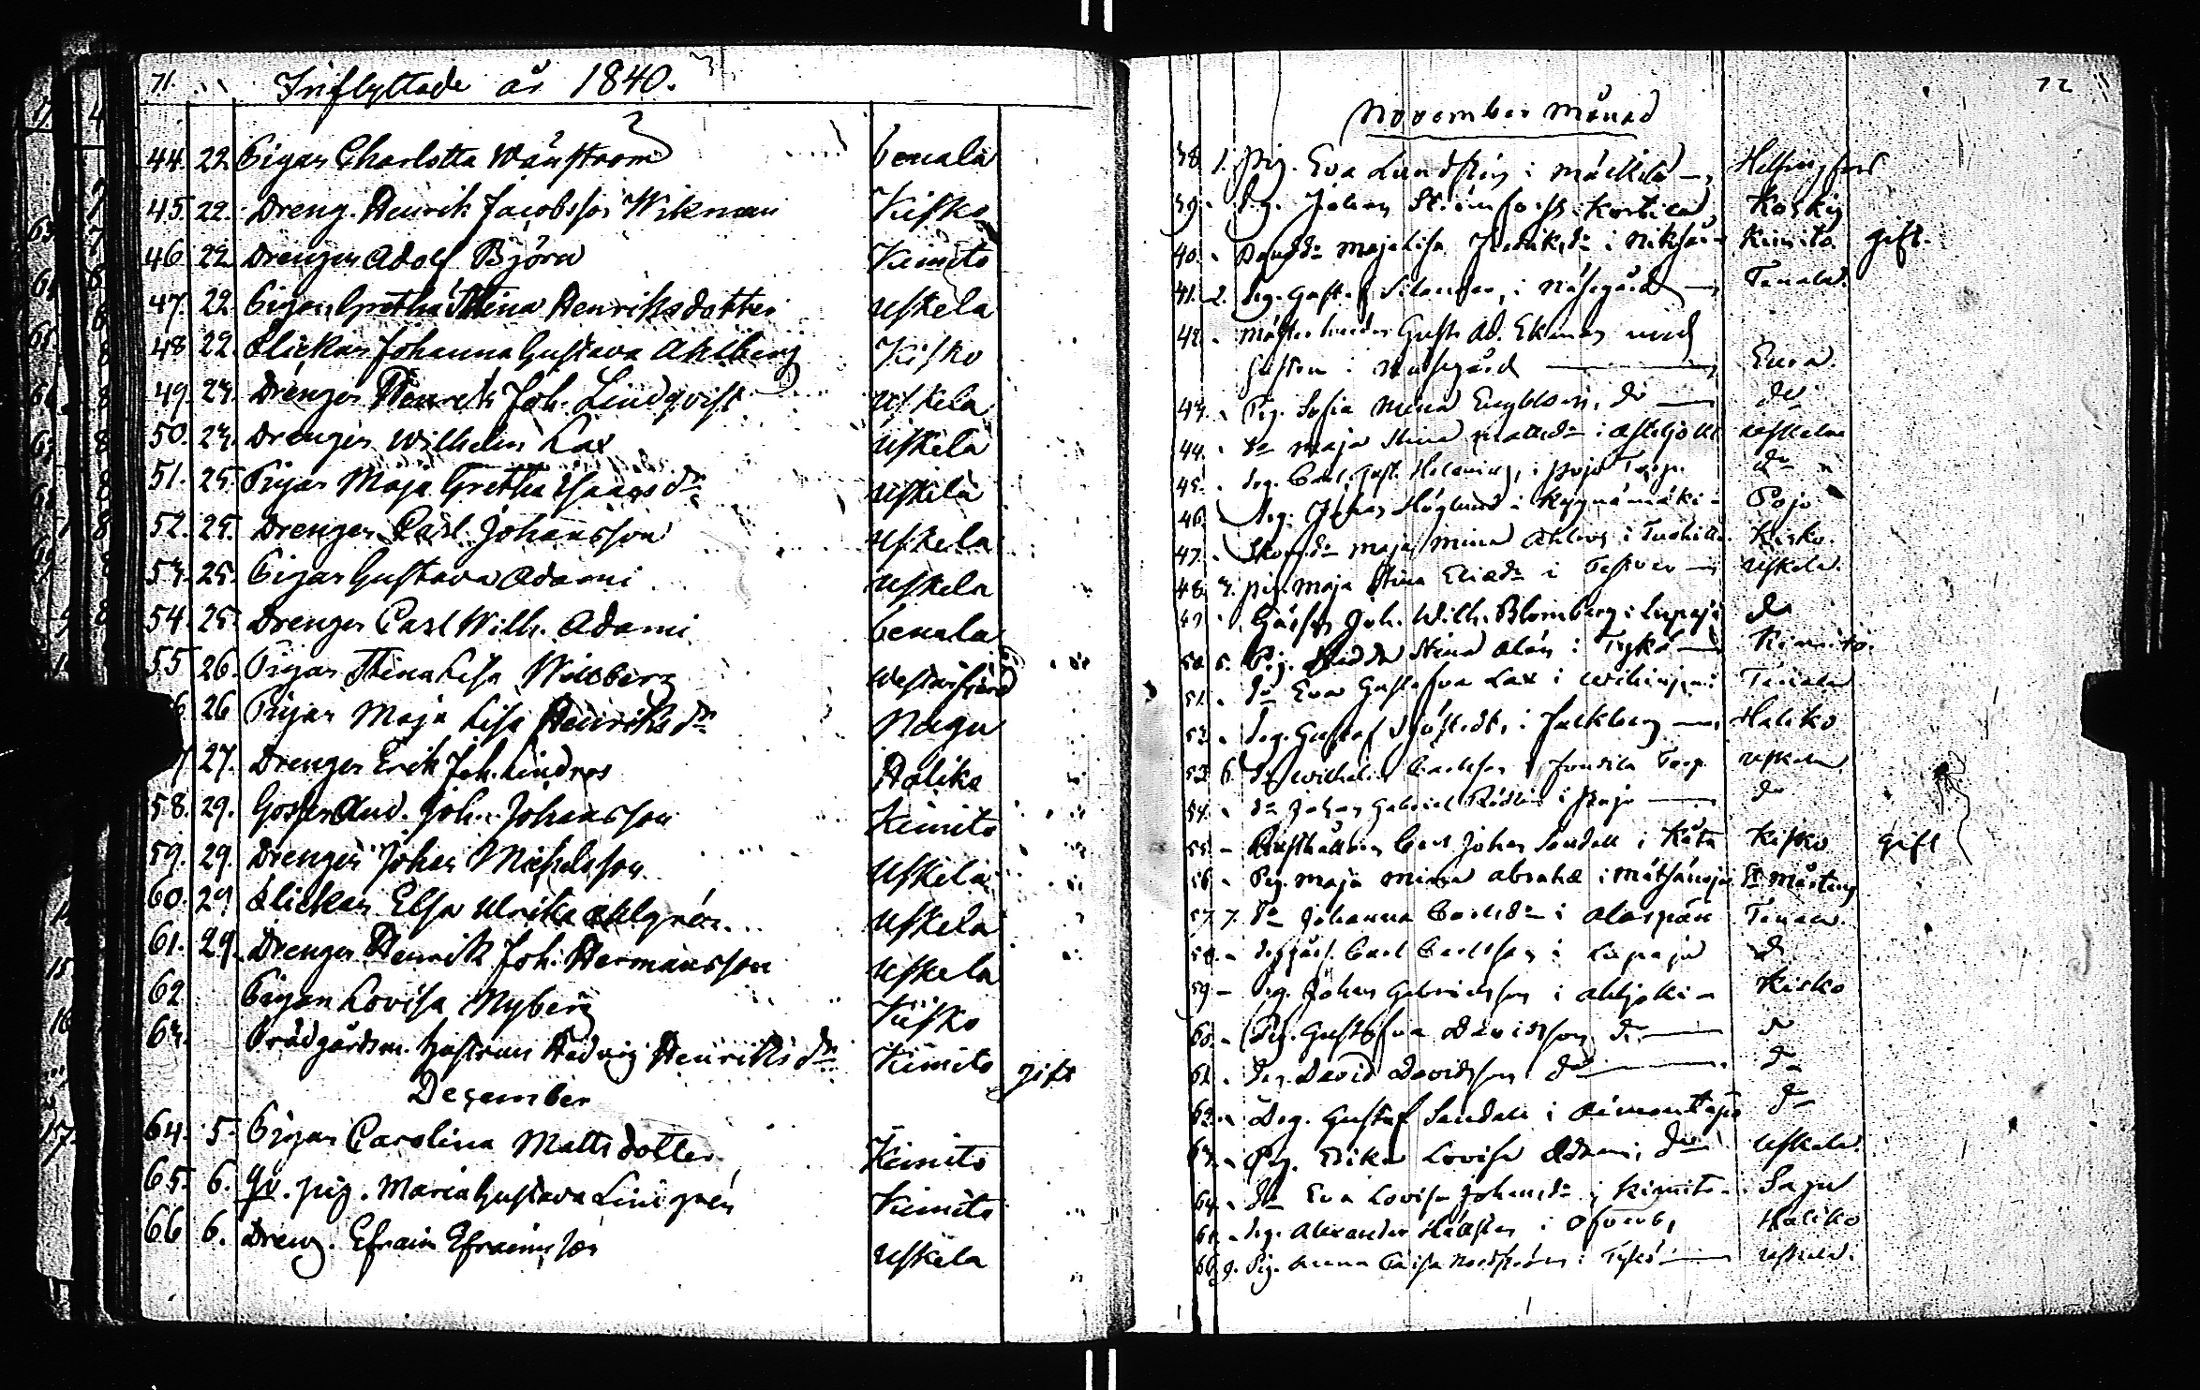 71. Inflyttade år 1840.
44. 22. Pigan Charlotta Wänström Tenala
45. 22. Dreng. Henrik Jacobsson Wikman Kisko
46 22 Drengen Adolf Björn Kimito
47. 22 Pigan Gretha Stina Henriksdotter Uskela
48 22. Flickan Johanna Gustava Ahlberg Kisko
49. 23. Drengen Henrik Joh. Lindqvist Uskela
50. 23. Drengen Wilhelm Lax Uskela
51. 25. Pigan Maja Gretha Isaacs dr Uskela
52. 25. Drengen Carl Johansson Uskela
53. 25. Pigan Gustava Adami Uskela
54. 25. Drengen Carl Wilh. Adami Tenala
55 26. Pigan Stina Lisa Willberg Westanfjerd
6. 26 Pigan Maja Lisa Henriks dr Nagu
7 27. Drengen Erik Joh. Lindros Haliko
58. 29. Gossen And. Joh. Johansson Kimito
59. 29. Drengen Johan Michelsson Uskela
60. 29 Flickan Elsa Ulrika Ahlgrén Uskela
61. 29. Drengen Henrik Joh. Hermansson Uskela
62 Pigan Lovisa Nyberg Kisko
63. Trädgårdsm. hustrun Hedvig Henriks dr Kimito gift
December
64. 5. Pigan Carolina Matts dotter Kimito
65. 6. Qv. pig. Maria Gustava Lindgrén Kimito
66 6. Dreng. Efraim Efraimsson Uskela
72
November Månad
38 1. Pig. Eva Lundstén i Helsingfors
39. Dg. Johan Koskis
40. Maja Lisa Fredriksdr i Kimito gift.
41. 2. Dg. Gustaf Silander, i Näsegård Tenala.
42. Gust. Ad. Ekman med
hustru i Näsegård Eura.
43. Pig. Sofia Mina Engblom, do do
44. do Maja Stina Mattsdr i Uskela
45. Dg. Carl Gust. i Pojo Torp. do
46. Dg. Johan Höglund i Pojo
47. Maja Mina Ahlberg i Kisko.
48. 3. Pig. Maja Stina Eliædr i Uskela.
49. Joh. Wilh. Blomberg i Lupaja do
50. 5. Pig. Hedda Stina Alén i Tykö Kimito.
51. do Eva Gustafva Lax i Tenala
52. Dg. Gustaf Sjöstedt, i Falkberg Haliko
53. 6. do Wilhelm Carlsson i Torp Uskela
54. do Johan Gabriel i do
55 Carl Johan Sandell i Kisko gift
56. Pig. Maja Mina Abrahæ i St Mårtens
57. 7. do Johanna Carlsdr i Alaspää Tenala.
58. Carl Carlsson i Lupaja do
59 Dg. Johan Gabrielsson i Kisko
60. Pig. Gustafva Davidsson do do
61. Dg. David Davidsson do do
62. Dg. Gustaf Sandell i do
63. Pig. Erika Lovisa Adami, do Uskela.
64. do Eva Lovisa Johansdr i Kimito Sagu
65. Dg. Alexander i Haliko
66 9. Pig. Anna Caisa Nordström i Tykö Uskela.